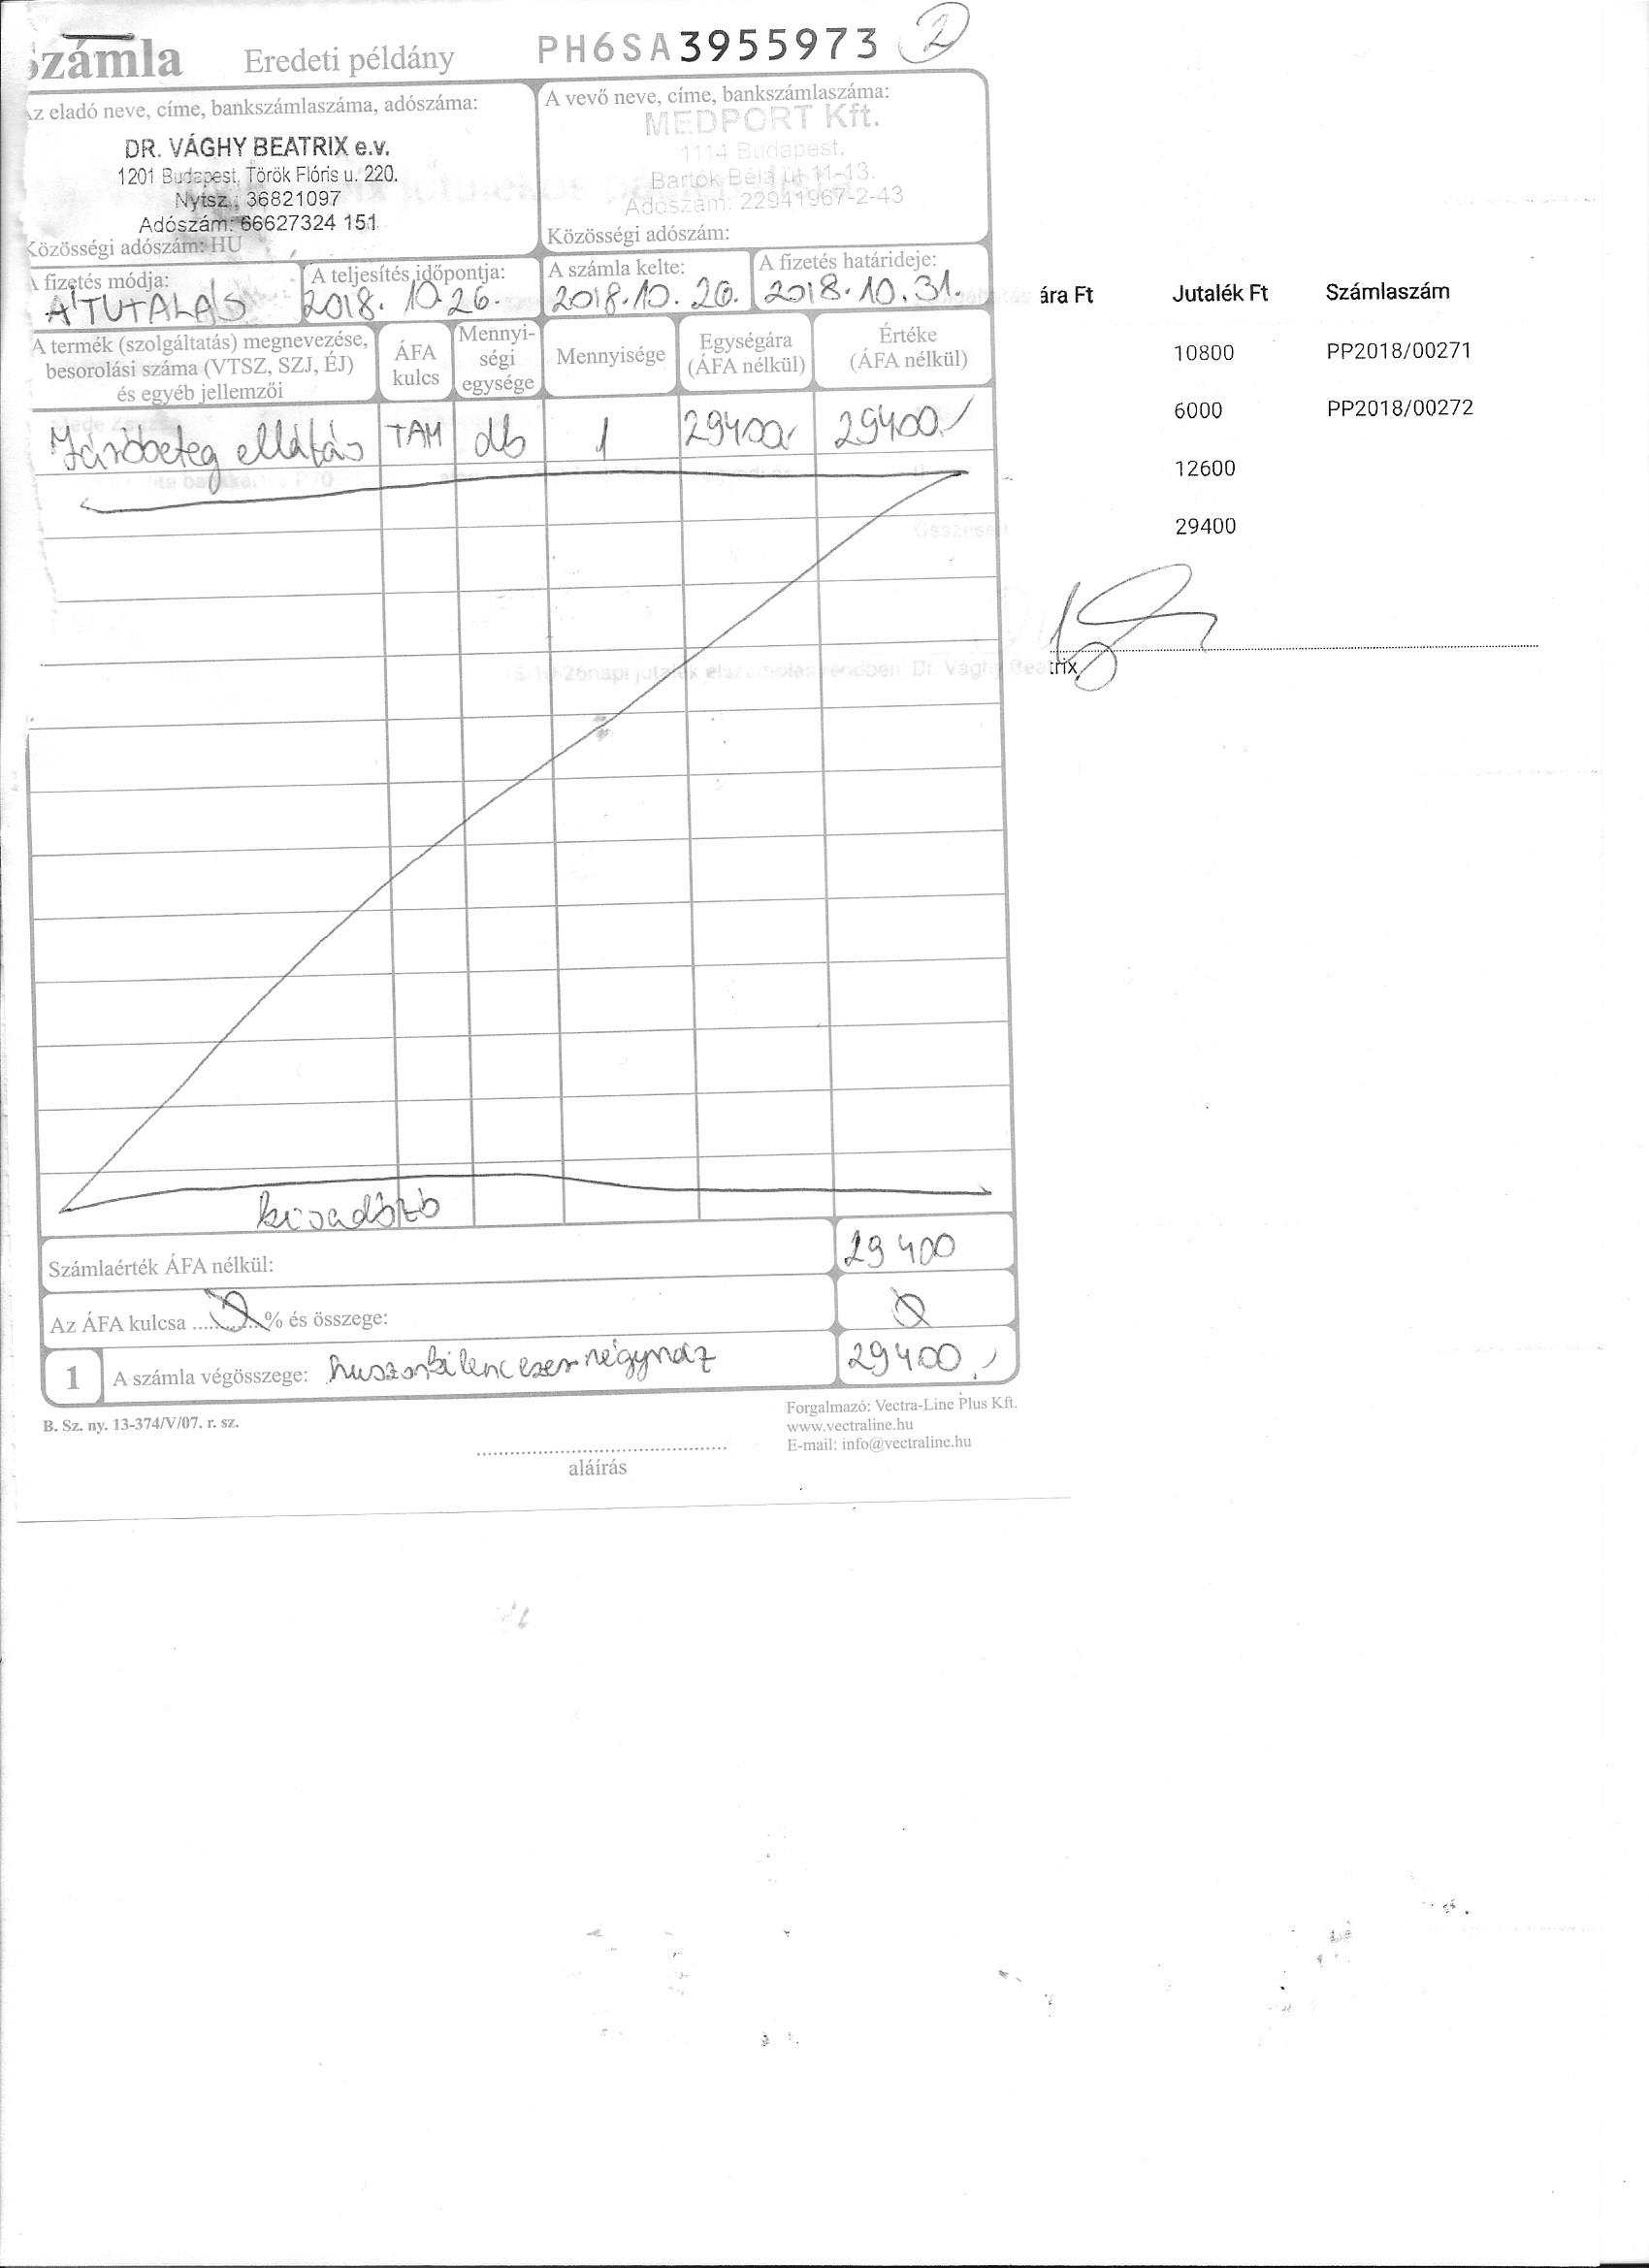 Számla Eredeti példány PH6SA3955973 2
Az eladó neve, címe, bankszámlaszáma, adószáma:
DR. VÁGHY BEATRIX e.v.
1201 Budapest, Török Flóris u. 220.
Nytsz.: 36821097
Adószám: 66627324 151
Közösségi adószám: HU
A vevő neve, címe, bankszámlaszáma:
MEDPORT Kft.
1114 Budapest.
Bartók Béla út 11-13.
Adószám: 22941967-2-43
Közösségi adószám:
A fizetés módja: A teljesítés időpontja: A számla kelte: A fizetés határideje:
ÁTUTALÁS 2018. 10.26. 2018.10.26. 2018.10.31.
A termék (szolgáltatás) megnevezése, besorolási száma (VTSZ, SZJ, ÉJ) és egyéb jellemzői
ÁFA kulcs
Mennyi-
ségi
egysége
Mennyisége
Egységára
(ÁFA nélkül)
Értéke
(ÁFA nélkül)
Járóbeteg ellátás TAM db 1 29400.- 29400.-
kisadózó
Számlaérték ÁFA nélkül: 29 400
Az ÁFA kulcsa ..... 0 % és összege: 0
1 A számla végösszege: huszonkilencezernégyszáz 29400,-
B. Sz. ny. 13-374/V/07. r. sz.
aláírás
Forgalmazó: Vectra-Line Plus Kft.
www.vectraline.hu
E-mail: info@vectraline.hu
ára Ft Jutalék Ft Számlaszám
10800 PP2018/00271
6000 PP2018/00272
12600
29400
Összesen
napi jutalék elszámolás rendben Dr. Vághy Beatrix